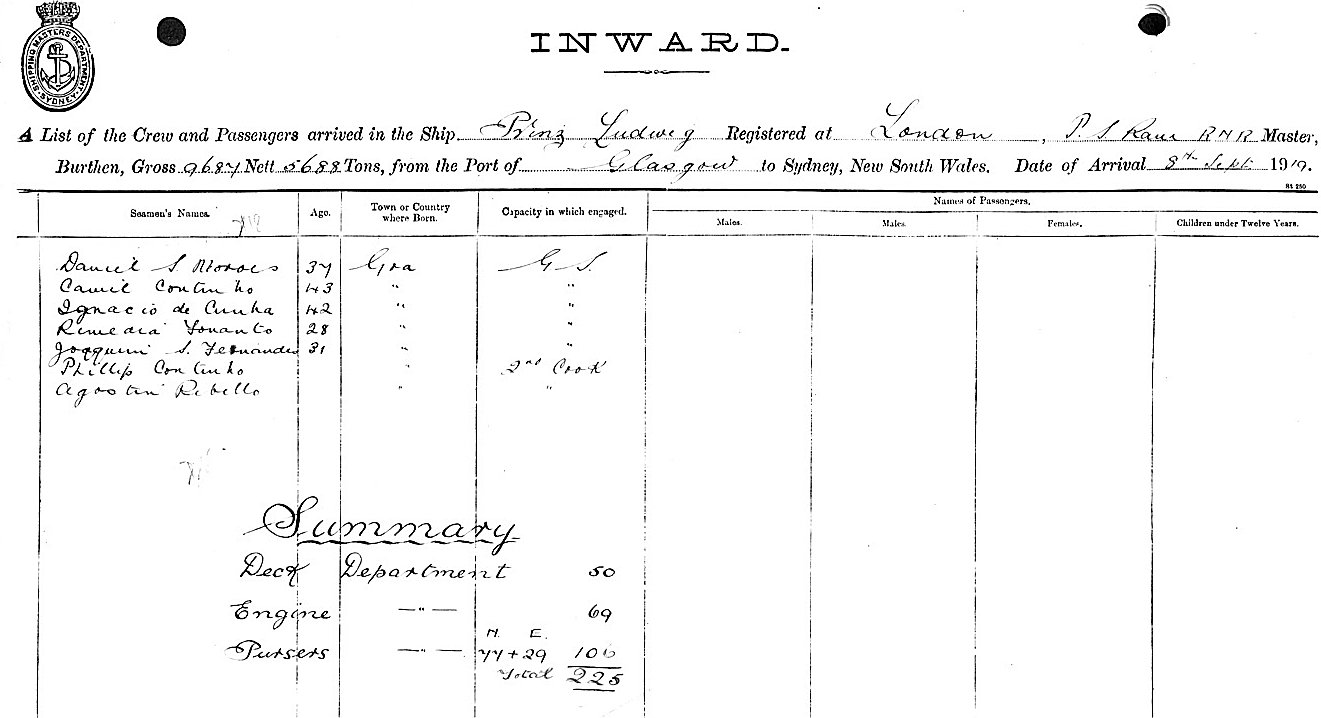 SHIPPING MASTERS DEPARTMENT SYDNEY
INWARD.
A List of the Crew and Passengers arrived in the Ship Prinz Ludwig Registered at London, P. S. RNR Master,
Burthen, Gross 9687 Nett 5688 Tons, from the Port of Glasgow to Sydney, New South Wales. Date of Arrival 8th Sept 1919.
RS 250
Seamen's Names. Age. Town or Country where Born. Capacity in which engaged. Names of Passengers.
Males. Males. Females. Children under Twelve Years.
Daniel S. 37 Goa G S.
Camil Continho 43 " "
Ignacio de Cunha 42 " "
28 " "
Joaquim S. Fernandes 31 " "
Phillip Continho " 2nd Cook
Agostin Rebello " "
Summary
Deck Department 50
Engine —"— 69
N. E.
Pursers —"— 77+29 106
Total 225